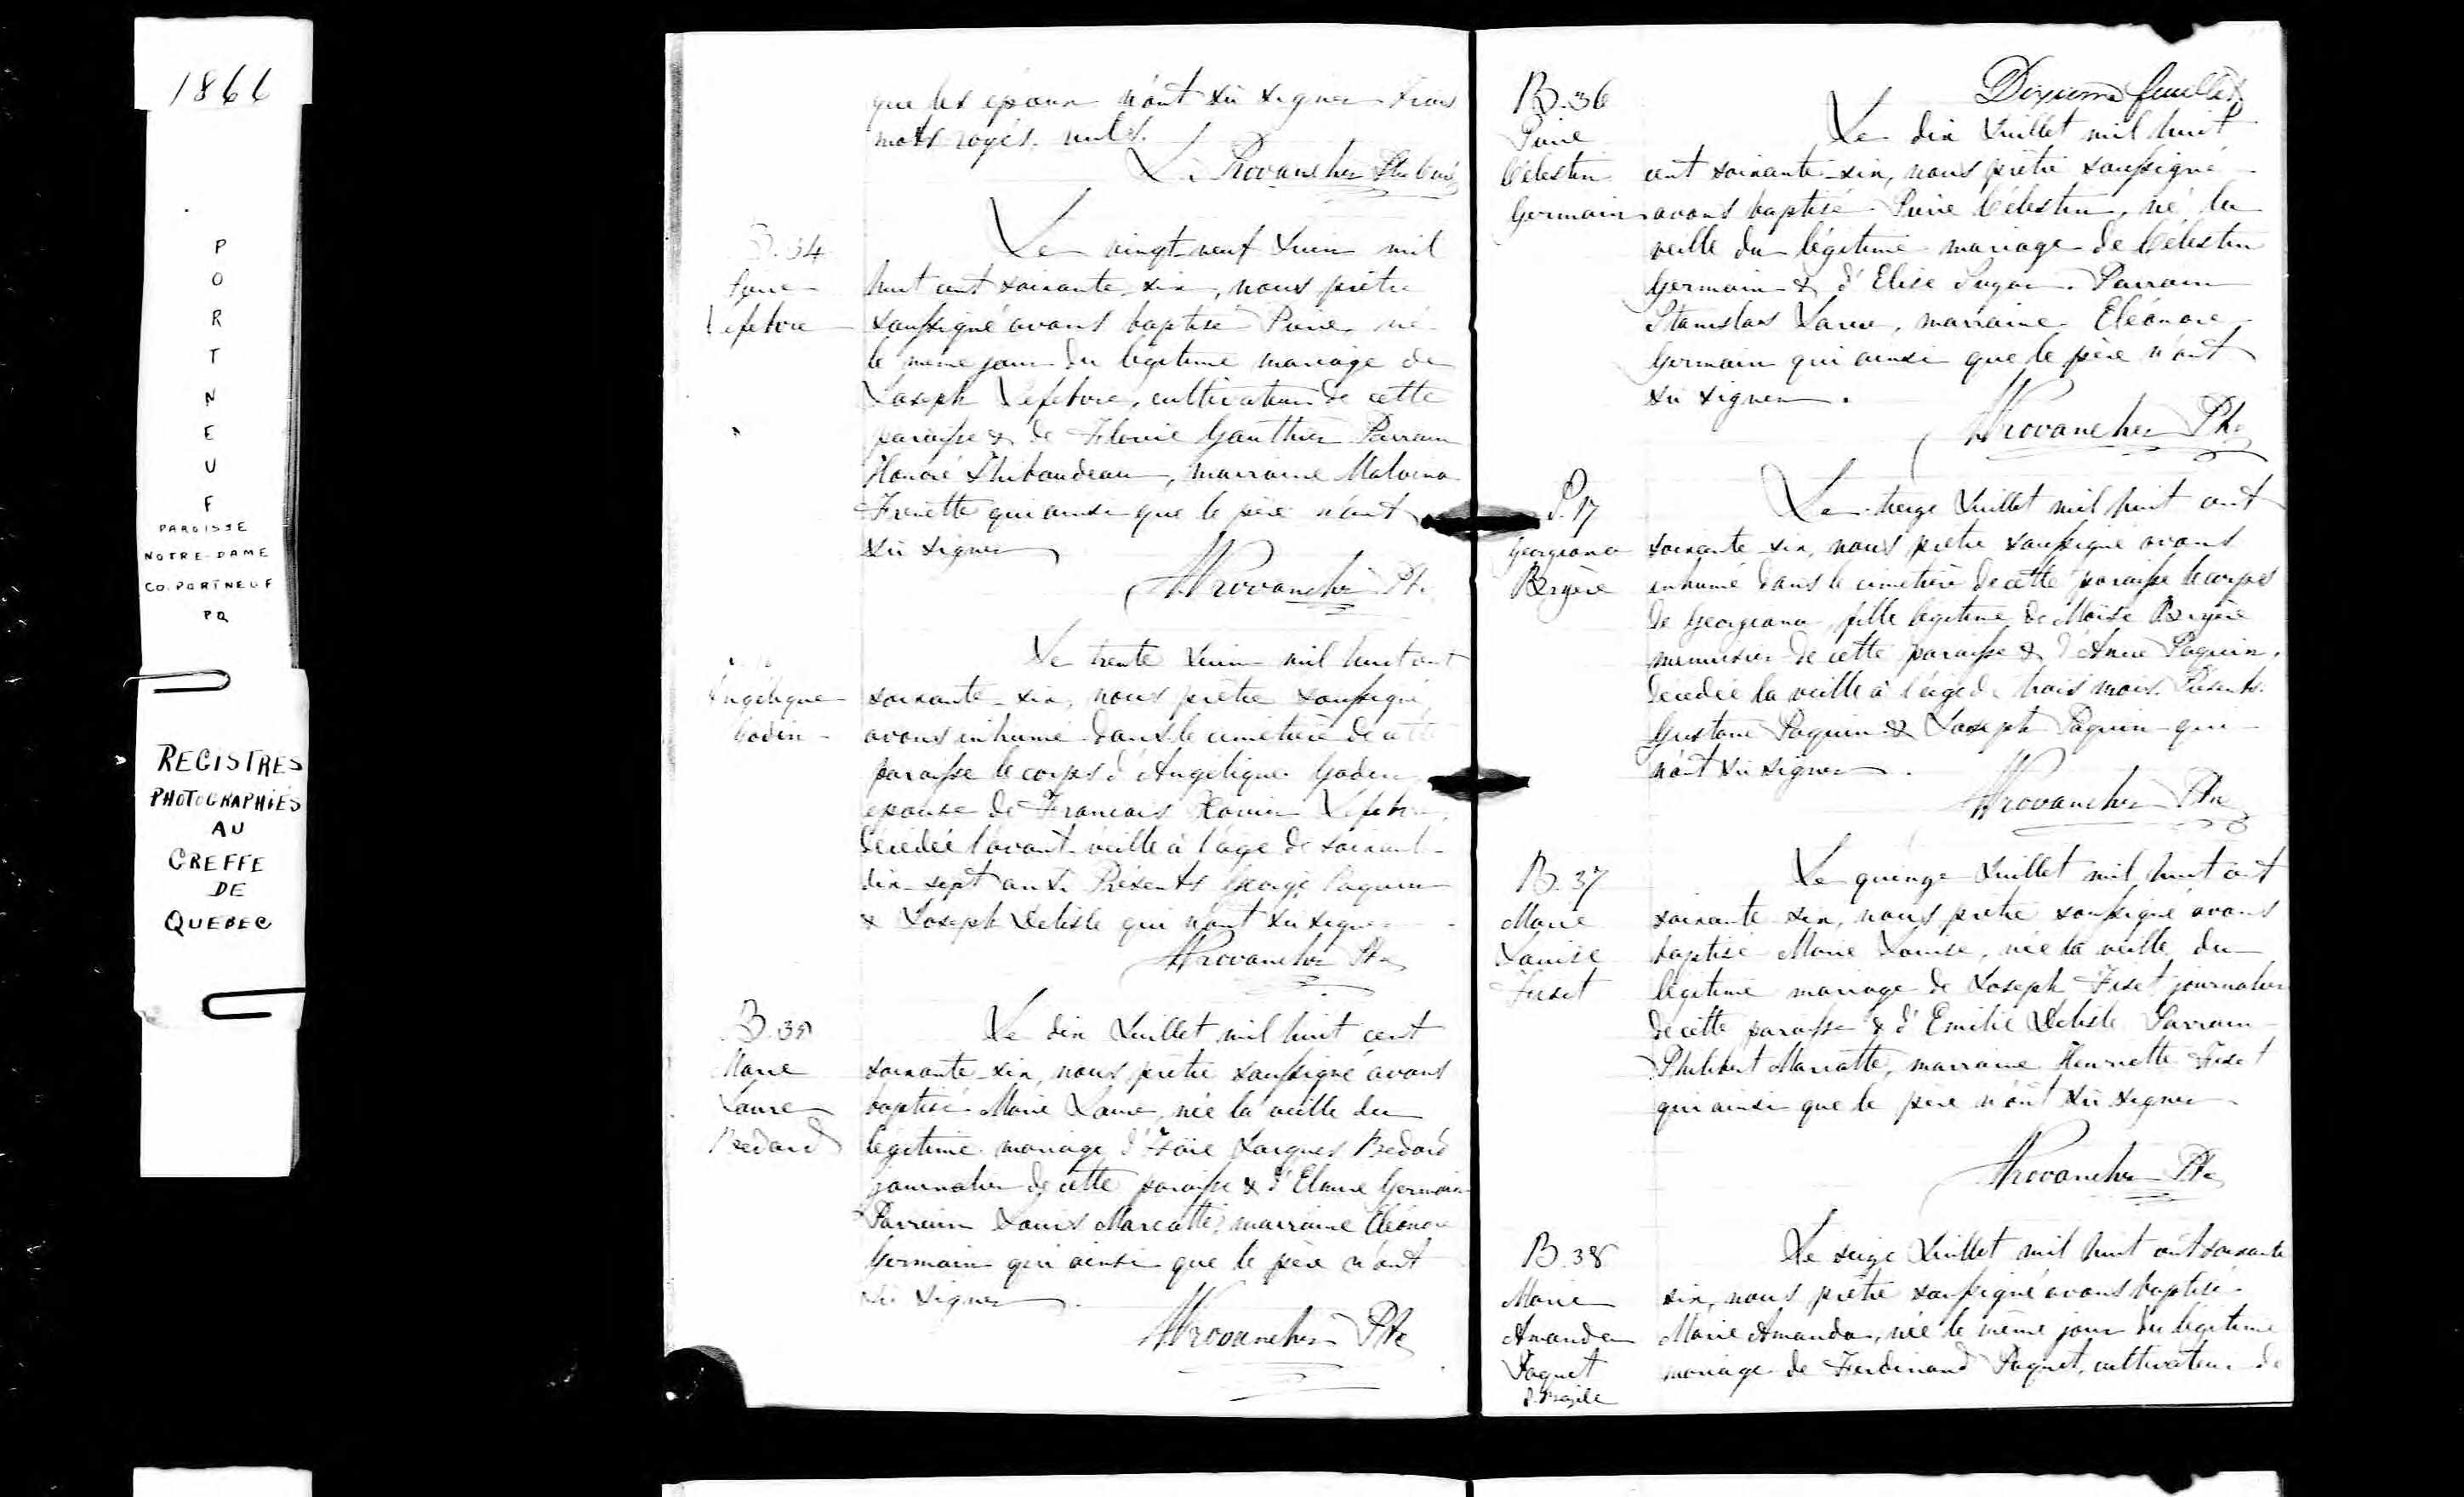 1866
P
O
R
T
N
E
U
F
PAROISSE
NOTRE-DAME
CO. PORTNEUF
PQ
REGISTRES
PHOTOGRAPHIÉS
AU
GREFFE
DE
QUEBEC
que les époux n'ont su signer trois
mots rayés nuls.
L. Provancher Ptre Curé
B.34
Pierre
Lefebvre
Le vingt-neuf Juin mil
huit cent soixante-six, nous prêtre
soussigné avons baptisé Pierre né
le même jour du légitime mariage de
Joseph Lefebvre, cultivateur de cette
paroisse & de Gauthier Parrain
Honoré Thibaudeau, marraine Malvina
Frenette qui ainsi que le père n'ont
su signer
LProvancher Ptr
Angélique
Godin
Le trente Juin mil huit cent
soixante-six, nous prêtre soussigné
avons inhumé dans le cimetière de cette
paroisse le corps d'Angélique Godin
épouse de François Xavier Lefebvre,
décédée l'avant-veille à l'âge de soixante-
dix-sept ans. Présents George Paquin
& Joseph Delisle qui n'ont su signer
LProvancher Ptr
B.35
Marie
Laure
Bedard
Le dix Juillet mil huit cent
soixante-six, nous prêtre soussigné avons
baptisé Marie Laure, née la veille du
légitime mariage d'Isaïe Jacques Bedard
journalier de cette paroisse & d'Elmire Germain
Parrain Louis Marcotte, marraine Eléonore
Germain qui ainsi que le père n'ont
su signer.
LProvancher Ptr
Dixième feuillet
B.36
Pierre
Célestin
Germain
Le dix Juillet mil huit
cent soixante-six, nous prêtre soussigné
avons baptisé Pierre Célestin, né la
veille du légitime mariage de Célestin
Germain & d'Elise Parrain
Stanislas Larue, marraine Eléonore
Germain qui ainsi que le père n'ont
su signer.
LProvancher Ptr
S.17
Georgeana
Bergère
Le treize Juillet mil huit cent
soixante-six, nous prêtre soussigné avons
inhumé dans le cimetière de cette paroisse le corps
de Georgeana fille légitime de Moïse Bergère
menuisier de cette paroisse & d'Anne Paquin,
décédée la veille à l'âge de trois mois. Présents
Gustave Paquin & Joseph Paquin qui
n'ont su signer.
LProvancher Ptre
B.37
Marie
Louise
Fiset
Le quinze Juillet mil huit cent
soixante-six, nous prêtre soussigné avons
baptisé Marie Louise, née la veille du
légitime mariage de Joseph Fiset journalier
de cette paroisse & d'Emilie Delisle Parrain
Philibert Marcotte, marraine Henriette Fiset
qui ainsi que le père n'ont su signer.
LProvancher Ptr
B.38
Marie
Amanda
Paquet
Le seize Juillet mil huit cent soixante
six, nous prêtre soussigné avons baptisé
Marie Amanda, née le même jour du légitime
mariage de Ferdinand Paquet, cultivateur de